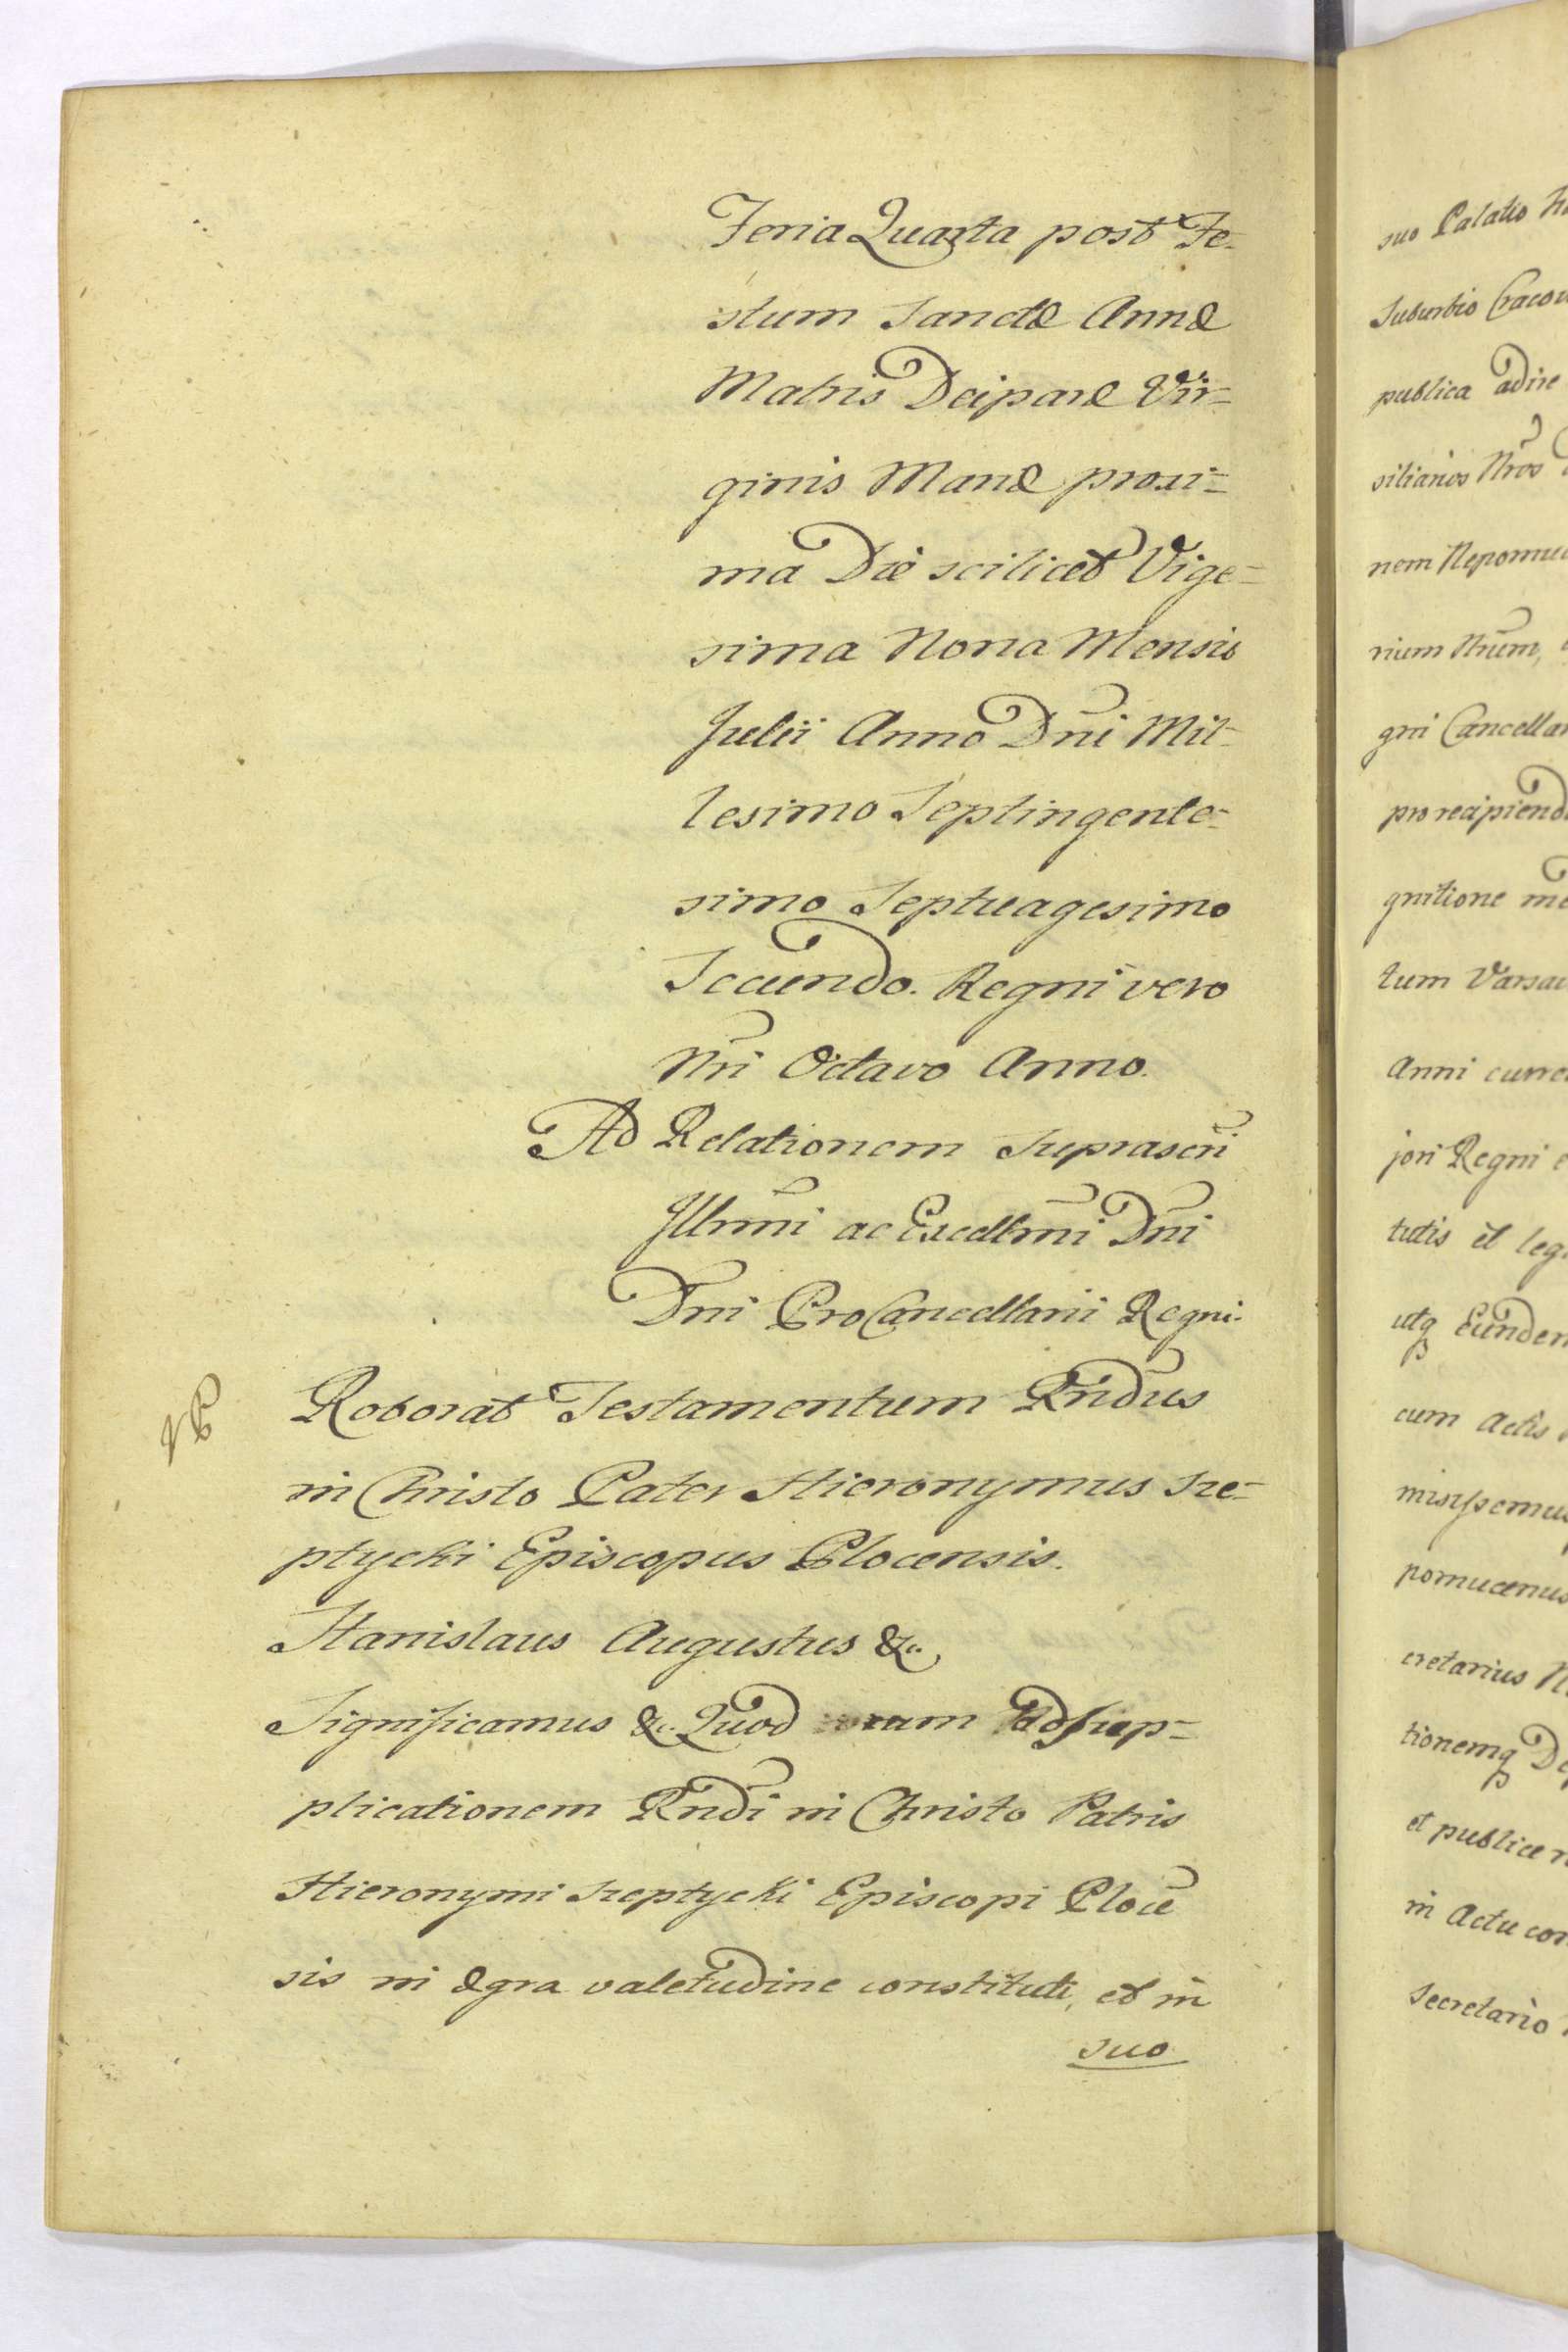 Feria Quarta post Fe-
stum Sanctæ Annæ
Matris Deiparæ Vir=
ginis Mariæ proxi=
ma Die scilicet Vige=
sima Nona Mensis
Julii Anno Dñi Mil-
lesimo Septingente-
simo Septuagesimo
Secundo. Regni vero
Nri Octavo Anno.
Ad Relationem suprascri
Illrmi ac Excellmi Dñi
Dni ProCancellarii Regni.
Roborat Testamentum Rndus
in Christo Pater Hieronymus Sze-
ptycki Episcopus Plocensis.
Stanislaus Augustus &c.
Significamus &c. Quod cum ad sup=
plicationem Rndi in Christo Patris
Hieronymi Szeptycki Episcopi Ploce
sis in ægra valetudine constituti, et in
suo
suo Palatio
Suburbio
publica adire
silianos Nros
nem
rium Nrum,
gni
pro
gnitione
tum
Anni
jori Regni
tutis et
utq Eundem
cum Actis
pomucenus
cretarius
tionemq
et publice
in Actu
Secretario